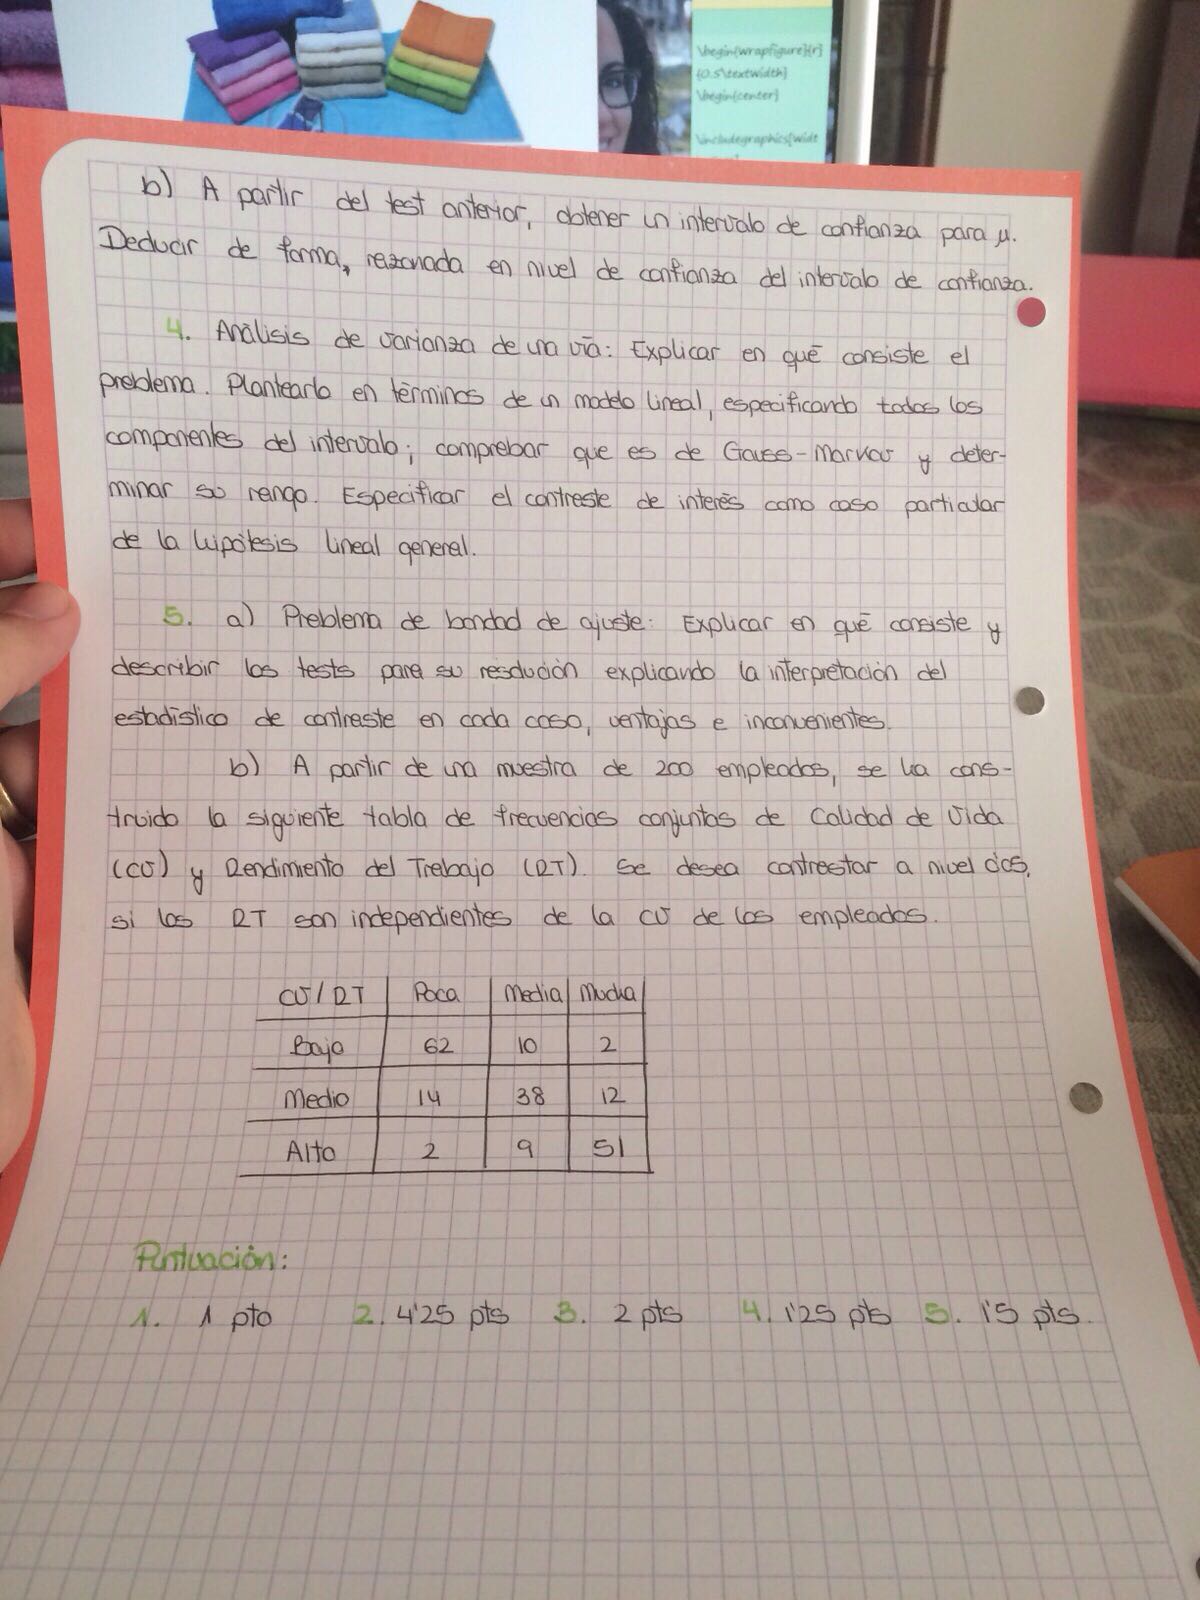 \begin{wrapfigure}{r}
{0.5\textwidth}
\begin{center}
\includegraphics[widt
b) A partir del test anterior, obtener un intervalo de confianza para μ.
Deducir de forma, razonada en nivel de confianza del intervalo de confianza.
4. Análisis de varianza de una vía: Explicar en qué consiste el
problema. Plantearlo en términos de un modelo lineal, especificando todos los
componentes del intervalo; comprobar que es de Gauss-Markov y deter-
minar su rango. Especificar el contraste de interés como caso particular
de la hipótesis lineal general.
5. a) Problema de bondad de ajuste: Explicar en qué consiste y
describir los tests para su resolución explicando la interpretación del
estadístico de contraste en cada caso, ventajas e inconvenientes.
b) A partir de una muestra de 200 empleados, se ha cons-
truido la siguiente tabla de frecuencias conjuntas de Calidad de Vida
(CV) y Rendimiento del Trabajo (RT). Se desea contrastar a nivel 0'05,
si los RT son independientes de la CV de los empleados.
CV/RT Poca Media Mucha
Bajo 62 10 2
Medio 14 38 12
Alto 2 9 51
Puntuación:
1. 1 pto 2. 4'25 pts 3. 2 pts 4. 1'25 pts 5. 1'5 pts.